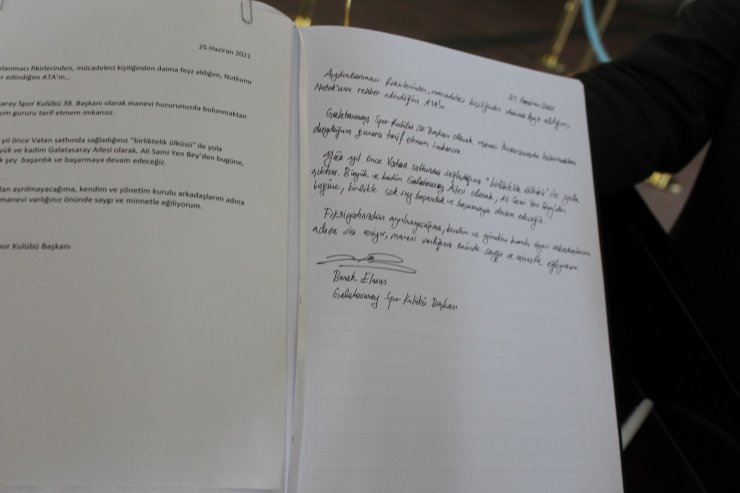 25 Haziran 2021
lanmacı fikirlerinden, mücadeleci kişiliğinden daima feyz aldığım, Nutkunu
r edindiğim ATA'm...
aray Spor Kulübü 38. Başkanı olarak manevi huzurunuzda bulunmaktan
um gururu tarif etmem imkansız.
yıl önce Vatan sathında sağladığınız "birliktelik ülküsü" ile yola
yük ve kadim Galatasaray Ailesi olarak, Ali Sami Yen Bey'den bugüne,
k şey başardık ve başarmaya devam edeceğiz.
dan ayrılmayacağıma, kendim ve yönetim kurulu arkadaşlarım adına
manevi varlığınız önünde saygı ve minnetle eğiliyorum.
por Kulübü Başkanı
25 Haziran 2021
Aydınlanmacı fikirlerinden, mücadeleci kişiliğinden daima feyz aldığım,
Nutuk'unu rehber edindiğim ATA'm...
Galatasaray Spor Kulübü 38. Başkanı olarak, manevi huzurunuzda bulunmaktan
duyduğum gururu tarif etmem imkansız.
Yüz yıl önce Vatan sathında sağladığınız "birliktelik ülküsü" ile yola
çıktık. Büyük ve kadim Galatasaray Ailesi olarak, Ali Sami Yen Bey'den
bugüne, birlikte çok şey başardık ve başarmaya devam edeceğiz.
ayrılmayacağıma, kendim ve yönetim kurulu arkadaşlarım
adına söz veriyor, manevi varlığınız önünde saygı ve minnetle eğiliyorum.
Burak Elmas
Galatasaray Spor Kulübü Başkanı